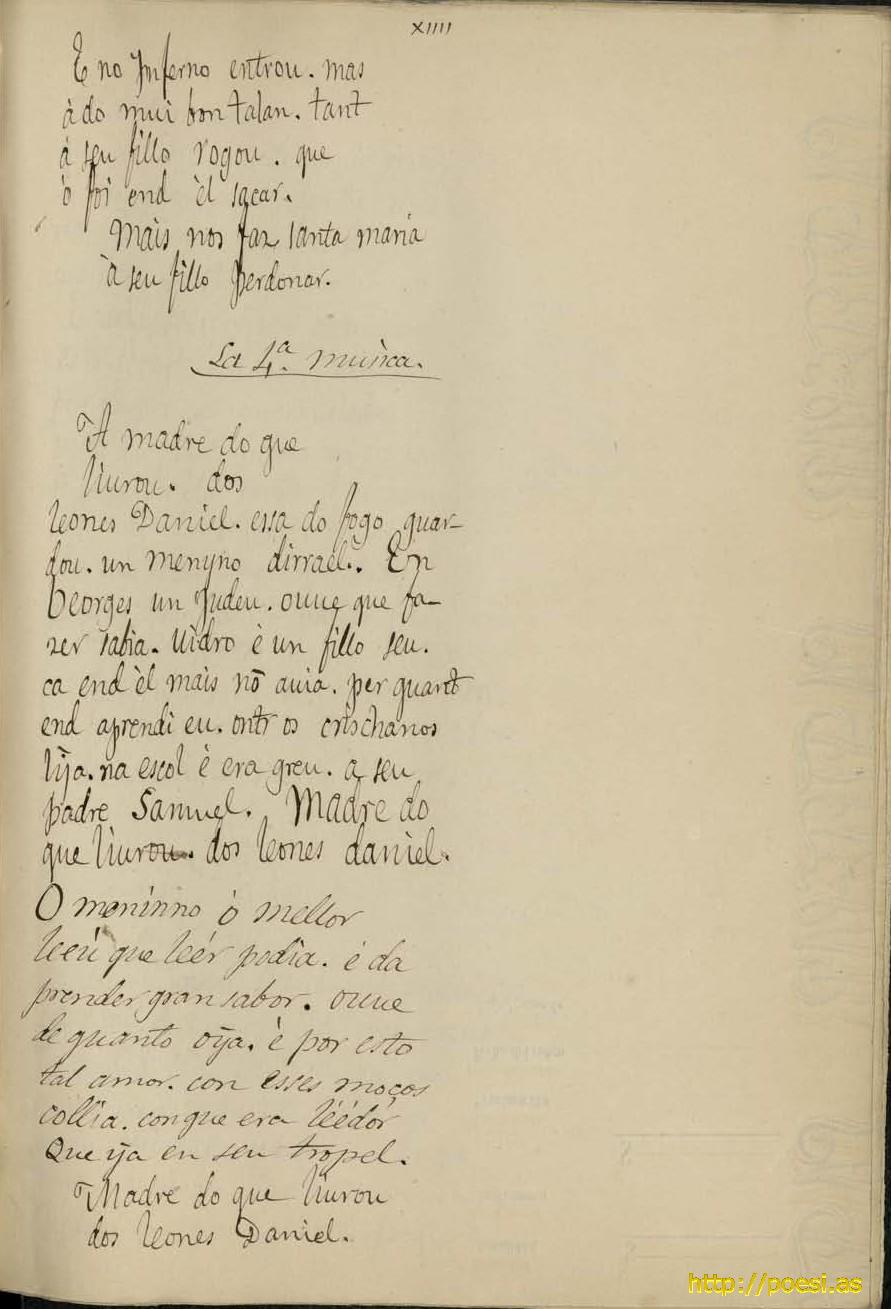 XIIII
E no Inferno entrou. mas
à do mui bon talan. tant
á seu fillo rogou. que
ò foi end èl sacar.
Mais nos faz santa maria
à seu fillo perdonar.
La 4.ª musica.
A madre do que
liurou. dos
leones Daniel. essa do fogo guar-
dou. un menyno dirrael. En
Beorges un Judeu. ouue que fa-
zer sabia. Uidro è un fillo seu.
ca end èl mais nō auia. per quant
end aprendi eu. ontr os crischanos
lÿa. na escol è era greu. a seu
padre Samuel. Madre do
que liurou. dos leones daniel.
O meninno ò mellor
leeú que leér podia. é da
prender gran sabor. ouue
de quanto oÿa. è por esto
tal amor. con esses moços
collia. con que era léédór
Que ÿa en seu tropel.
Madre do que liurou
dos leones Daniel.
http://poesi.as